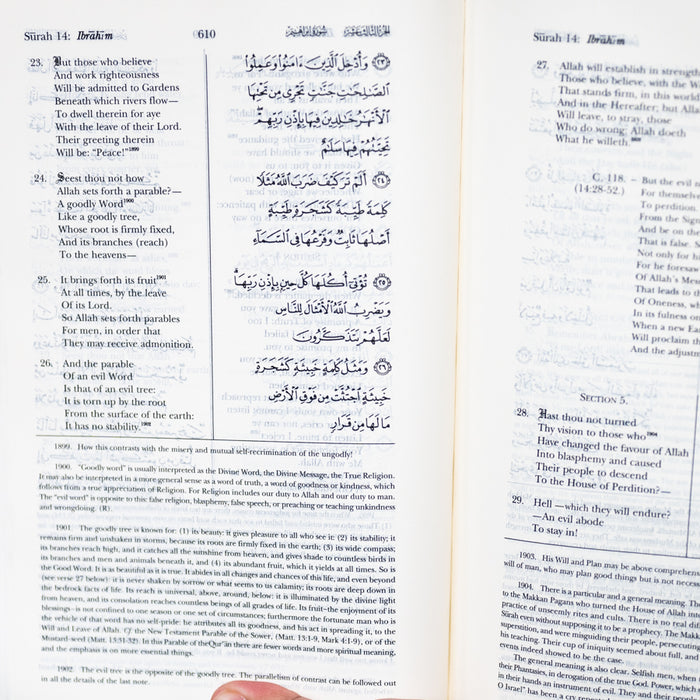 Sūrah 14: Ibrāhīm
610
سورة إبراهيم
الجزء الثالث عشر
23. But those who believe
And work righteousness
Will be admitted to Gardens
Beneath which rivers flow—
To dwell therein for aye
With the leave of their Lord.
Their greeting therein
Will be: "Peace!"1899
24. Seest thou not how
Allah sets forth a parable?—
A goodly Word1900
Like a goodly tree,
Whose root is firmly fixed,
And its branches (reach)
To the heavens—
25. It brings forth its fruit1901
At all times, by the leave
Of its Lord.
So Allah sets forth parables
For men, in order that
They may receive admonition.
26. And the parable
Of an evil Word
Is that of an evil tree:
It is torn up by the root
From the surface of the earth:
It has no stability.1902
﴿٢٣﴾ وَأُدْخِلَ ٱلَّذِينَ ءَامَنُوا۟ وَعَمِلُوا۟
ٱلصَّـٰلِحَـٰتِ جَنَّـٰتٍ تَجْرِى مِن تَحْتِهَا
ٱلْأَنْهَـٰرُ خَـٰلِدِينَ فِيهَا بِإِذْنِ رَبِّهِمْ
تَحِيَّتُهُمْ فِيهَا سَلَـٰمٌ
﴿٢٤﴾ أَلَمْ تَرَ كَيْفَ ضَرَبَ ٱللَّهُ مَثَلًا
كَلِمَةً طَيِّبَةً كَشَجَرَةٍ طَيِّبَةٍ
أَصْلُهَا ثَابِتٌ وَفَرْعُهَا فِى ٱلسَّمَآءِ
﴿٢٥﴾ تُؤْتِىٓ أُكُلَهَا كُلَّ حِينٍۭ بِإِذْنِ رَبِّهَا
وَيَضْرِبُ ٱللَّهُ ٱلْأَمْثَالَ لِلنَّاسِ
لَعَلَّهُمْ يَتَذَكَّرُونَ
﴿٢٦﴾ وَمَثَلُ كَلِمَةٍ خَبِيثَةٍ كَشَجَرَةٍ
خَبِيثَةٍ ٱجْتُثَّتْ مِن فَوْقِ ٱلْأَرْضِ
مَا لَهَا مِن قَرَارٍ
1899. How this contrasts with the misery and mutual self-recrimination of the ungodly!
1900. "Goodly word" is usually interpreted as the Divine Word, the Divine Message, the True Religion.
It may also be interpreted in a more general sense as a word of truth, a word of goodness or kindness, which
follows from a true appreciation of Religion. For Religion includes our duty to Allah and our duty to man.
The "evil word" is opposite to this: false religion, blasphemy, false speech, or preaching or teaching unkindness
and wrongdoing. (R).
1901. The goodly tree is known for: (1) its beauty: it gives pleasure to all who see it; (2) its stability; it
remains firm and unshaken in storms, because its roots are firmly fixed in the earth; (3) its wide compass;
its branches reach high, and it catches all the sunshine from heaven, and gives shade to countless birds in
its branches and men and animals beneath it, and (4) its abundant fruit, which it yields at all times. So is
the Good Word. It is as beautiful as it is true. It abides in all changes and chances of this life, and even beyond
(see verse 27 below): it is never shaken by sorrow or what seems to us calamity; its roots are deep down in
the bedrock facts of life. Its reach is universal, above, around, below: it is illuminated by the divine light
from heaven, and its consolation reaches countless beings of all grades of life. Its fruit—the enjoyment of its
blessings—is not confined to one season or one set of circumstances; furthermore the fortunate man who is
the vehicle of that word has no self-pride: he attributes all its goodness, and his act in spreading it, to the
Will and Leave of Allah. Cf. the New Testament Parable of the Sower, (Matt. 13:1-9, Mark 4:1-9), or of the
Mustard-seed (Matt. 13:31-32). In this Parable of the Qur'ān there are fewer words and more spiritual meaning,
and the emphasis is on more essential things.
1902. The evil tree is the opposite of the goodly tree. The parallelism of contrast can be followed out
in all the details of the last note.
Sūrah 14: Ibrāhīm
27. Allah will establish in strength
Those who believe, with the
That stands firm, in this world
And in the Hereafter; but Allah
Will leave, to stray, those
Who do wrong: Allah doeth
What he willeth.
C. 118. – But the evil
(14:28-52.) For themselves
To perdition.
From the Sign
And be on the
That is false.
Not only for
For he foresaw
Of Allah's
That leads to
Of Oneness,
In its fulness
When a new
Will proclaim
And the
SECTION 5.
28. Hast thou not turned
Thy vision to those who1904
Have changed the favour of Allah
Into blasphemy and caused
Their people to descend
To the House of Perdition?—
29. Hell—which they will endure?
—An evil abode
To stay in!
1903. His Will and Plan may be above
will of man, who may plan good things but is not
1904. There is a particular and a general meaning.
to the Makkan Pagans who turned the House of Allah into
practice of unseemly rites and cults. There is no real
Sūrah even without supposing it to be a prophecy. The
superstition, and were misguiding their people, persecuting
his teaching. Their cup of iniquity seemed about full, and
events indeed showed to be the case.
The general meaning is also clear. Selfish men, when
their Phantasies, in derogation of the true God. Power,
in their hands an instrument of evil.